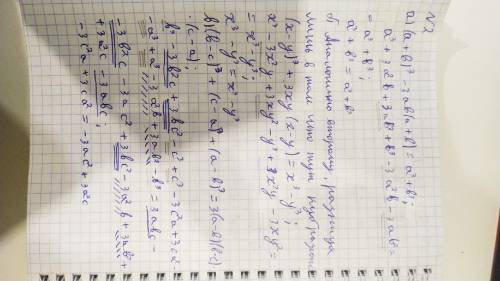 N2
а) (a+b)³-3ab(a+b)=a³+b³;
a³+3a²b+3ab²+b³-3a²b-3ab²=
=a³+b³;
a³+b³=a³+b³
б) Аналогично второму, разница
лишь в том что тут
(x-y)³+3xy(x-y)=x³-y³;
x³-3x²y+3xy²-y³+3x²y-3xy²=
=x³-y³;
x³-y³=x³-y³
в)(b-c)³+(c-a)³+(a-b)³=3(a-b)(b-c)·
·(c-a);
b³-3b²c+3bc²-c³+c³-3c²a+3ca²-
-a³+a³-3a²b+3ab²-b³=3abc-
-3b²c-3ac²+3bc²-3a²b+3ab²+
+3a²c-3abc;
-3c²a+3ca²=-3ac²+3a²c